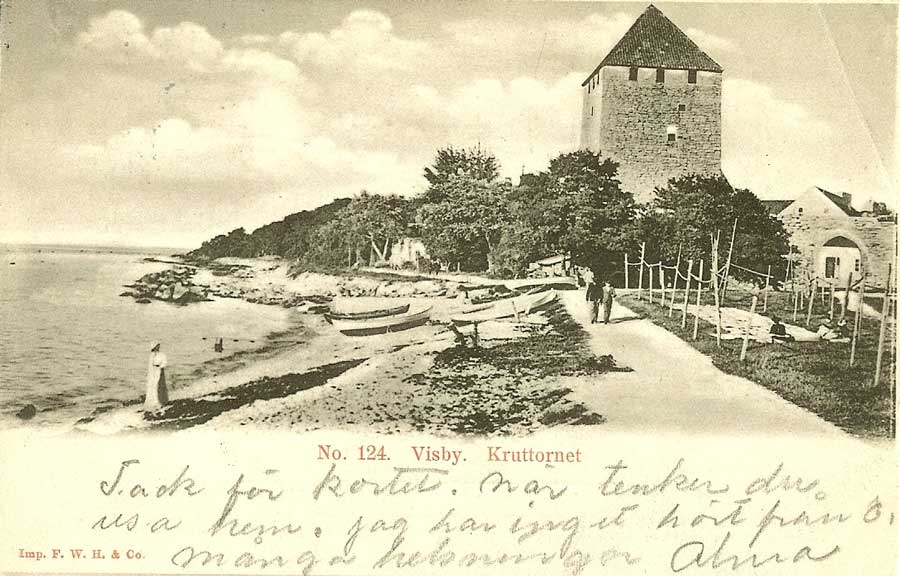 No. 124. Visby. Kruttornet
Tack för kortet. när tenker du
resa hem. jag har inget hört från O.
Imp. F. W. H. & Co.
många helsningor Alma